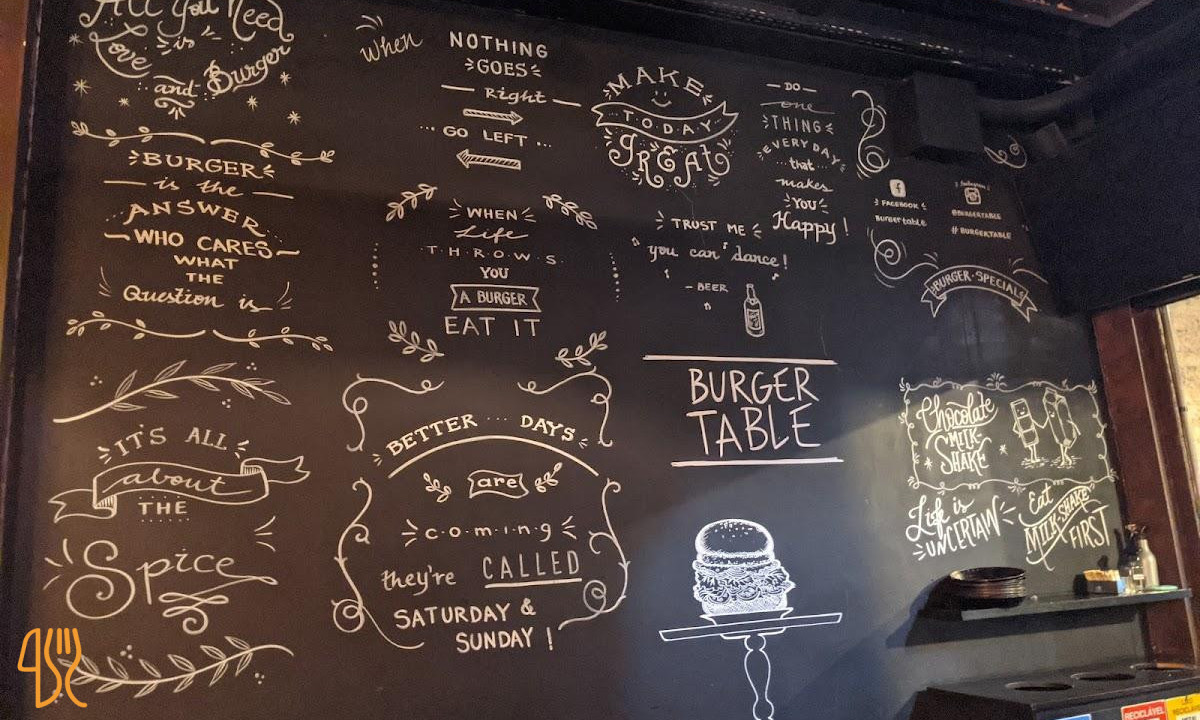 All you Need
is
Love
and Burger
BURGER
is the
ANSWER
WHO CARES
WHAT
THE
Question is
IT'S ALL
about
THE
Spice
When
NOTHING
GOES
Right
GO LEFT
WHEN
Life
T·H·R·O·W·S
YOU
A BURGER
EAT IT
BETTER ... DAYS
are
c·o·m·i·n·g
they're CALLED
SATURDAY &
SUNDAY !
MAKE
T·O·D·A·Y
GREAT
DO
one
THING
EVERYDAY
that
makes
YOU
Happy !
TRUST ME
you can dance!
- BEER
BURGER
TABLE
FACEBOOK
Burgertable
Instagram
@BURGERTABLE
# BURGERTABLE
BURGER·SPECIALS
Chocolate
MILK-
SHAKE
Life is
UNCERTAIN
Eat
MILK-SHAKE
FIRST
RECICLÁVEL